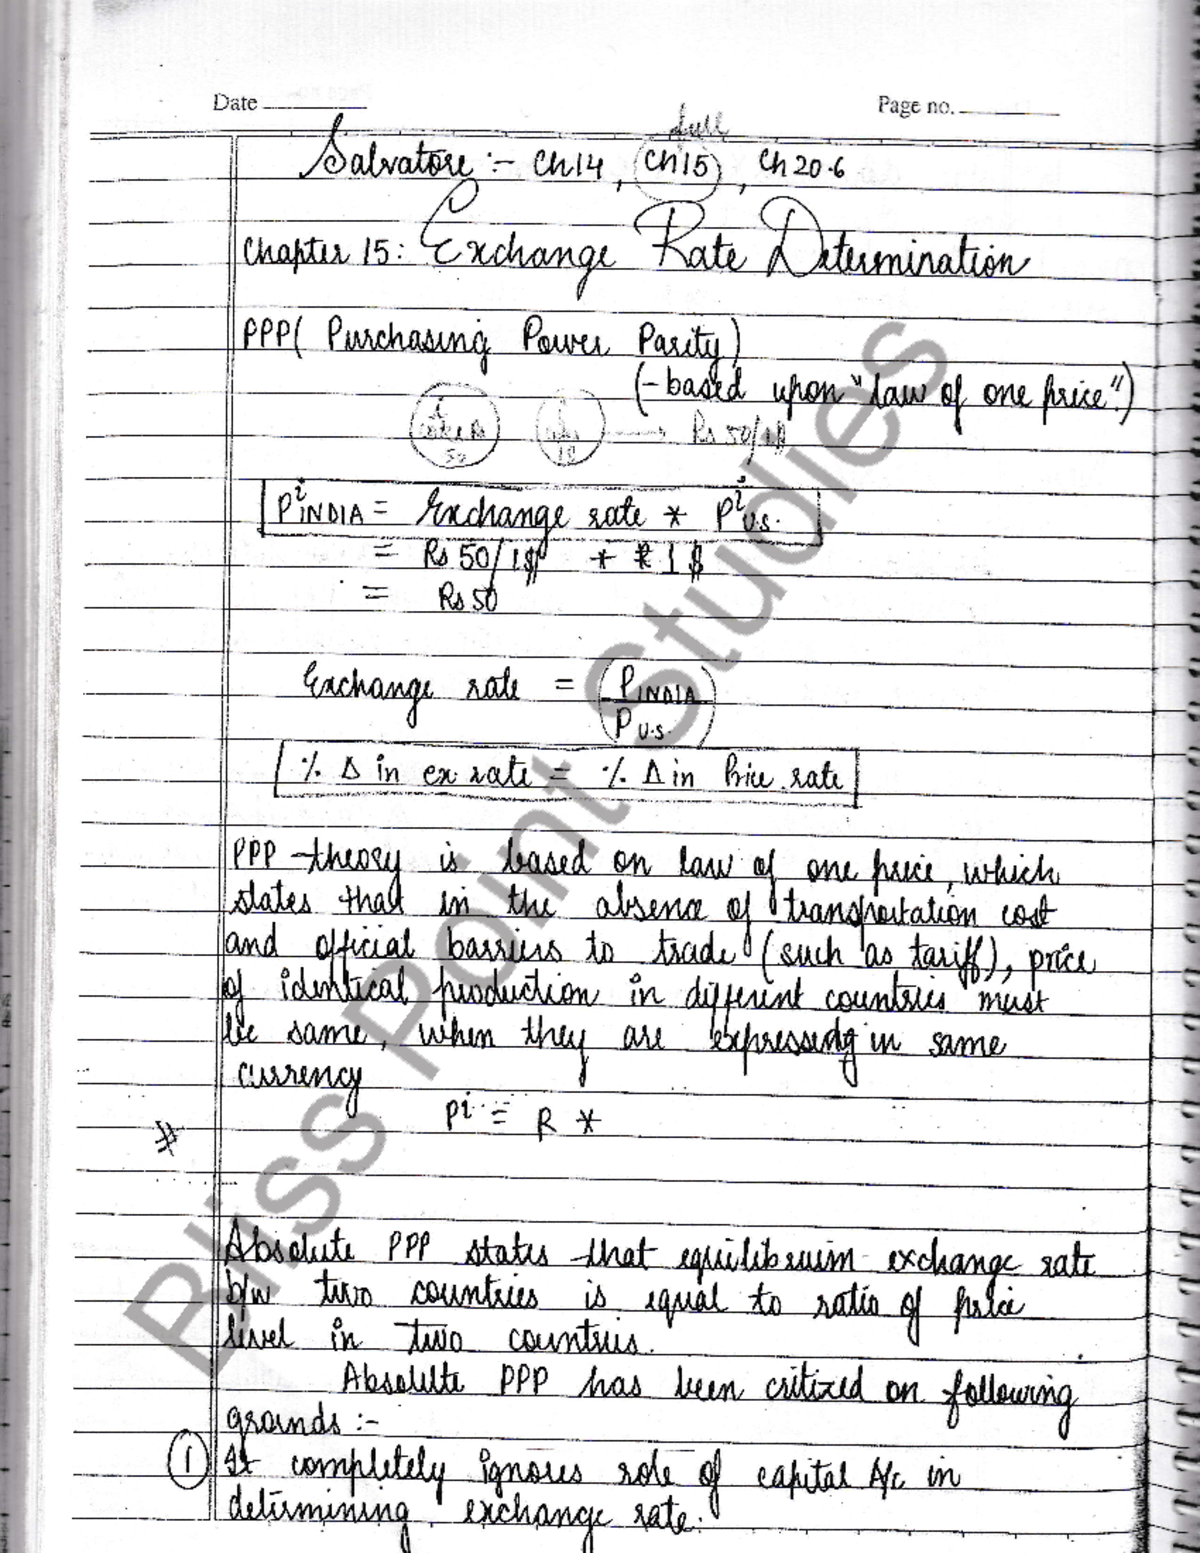 Date
Page no.
full
Salvatore :- Ch 14, Ch 15, Ch 20.6
Chapter 15: Exchange Rate Determination
PPP( Purchasing Power Parity)
(-based upon "law of one price")
50 → Rs 50/1$
P^i INDIA = Exchange rate * P^i U.S.
= Rs 50/1$ * 1$
= Rs 50
Exchange rate = (P INDIA
P U.S.)
% Δ in ex rate = % Δ in Price rate
PPP theory is based on law of one price, which
states that in the absence of transportation cost
and official barriers to trade (such as tariff), price
of identical production in different countries must
be same, when they are in same
currency
Pi = R *
#
Absolute PPP states that equilibruim exchange rate
b/w two countries is equal to ratio of price
level in two countries.
Absolute PPP has been critized on following
grounds :-
① It completely ignores role of capital A/c in
determining exchange rate.
Bliss Point Studies